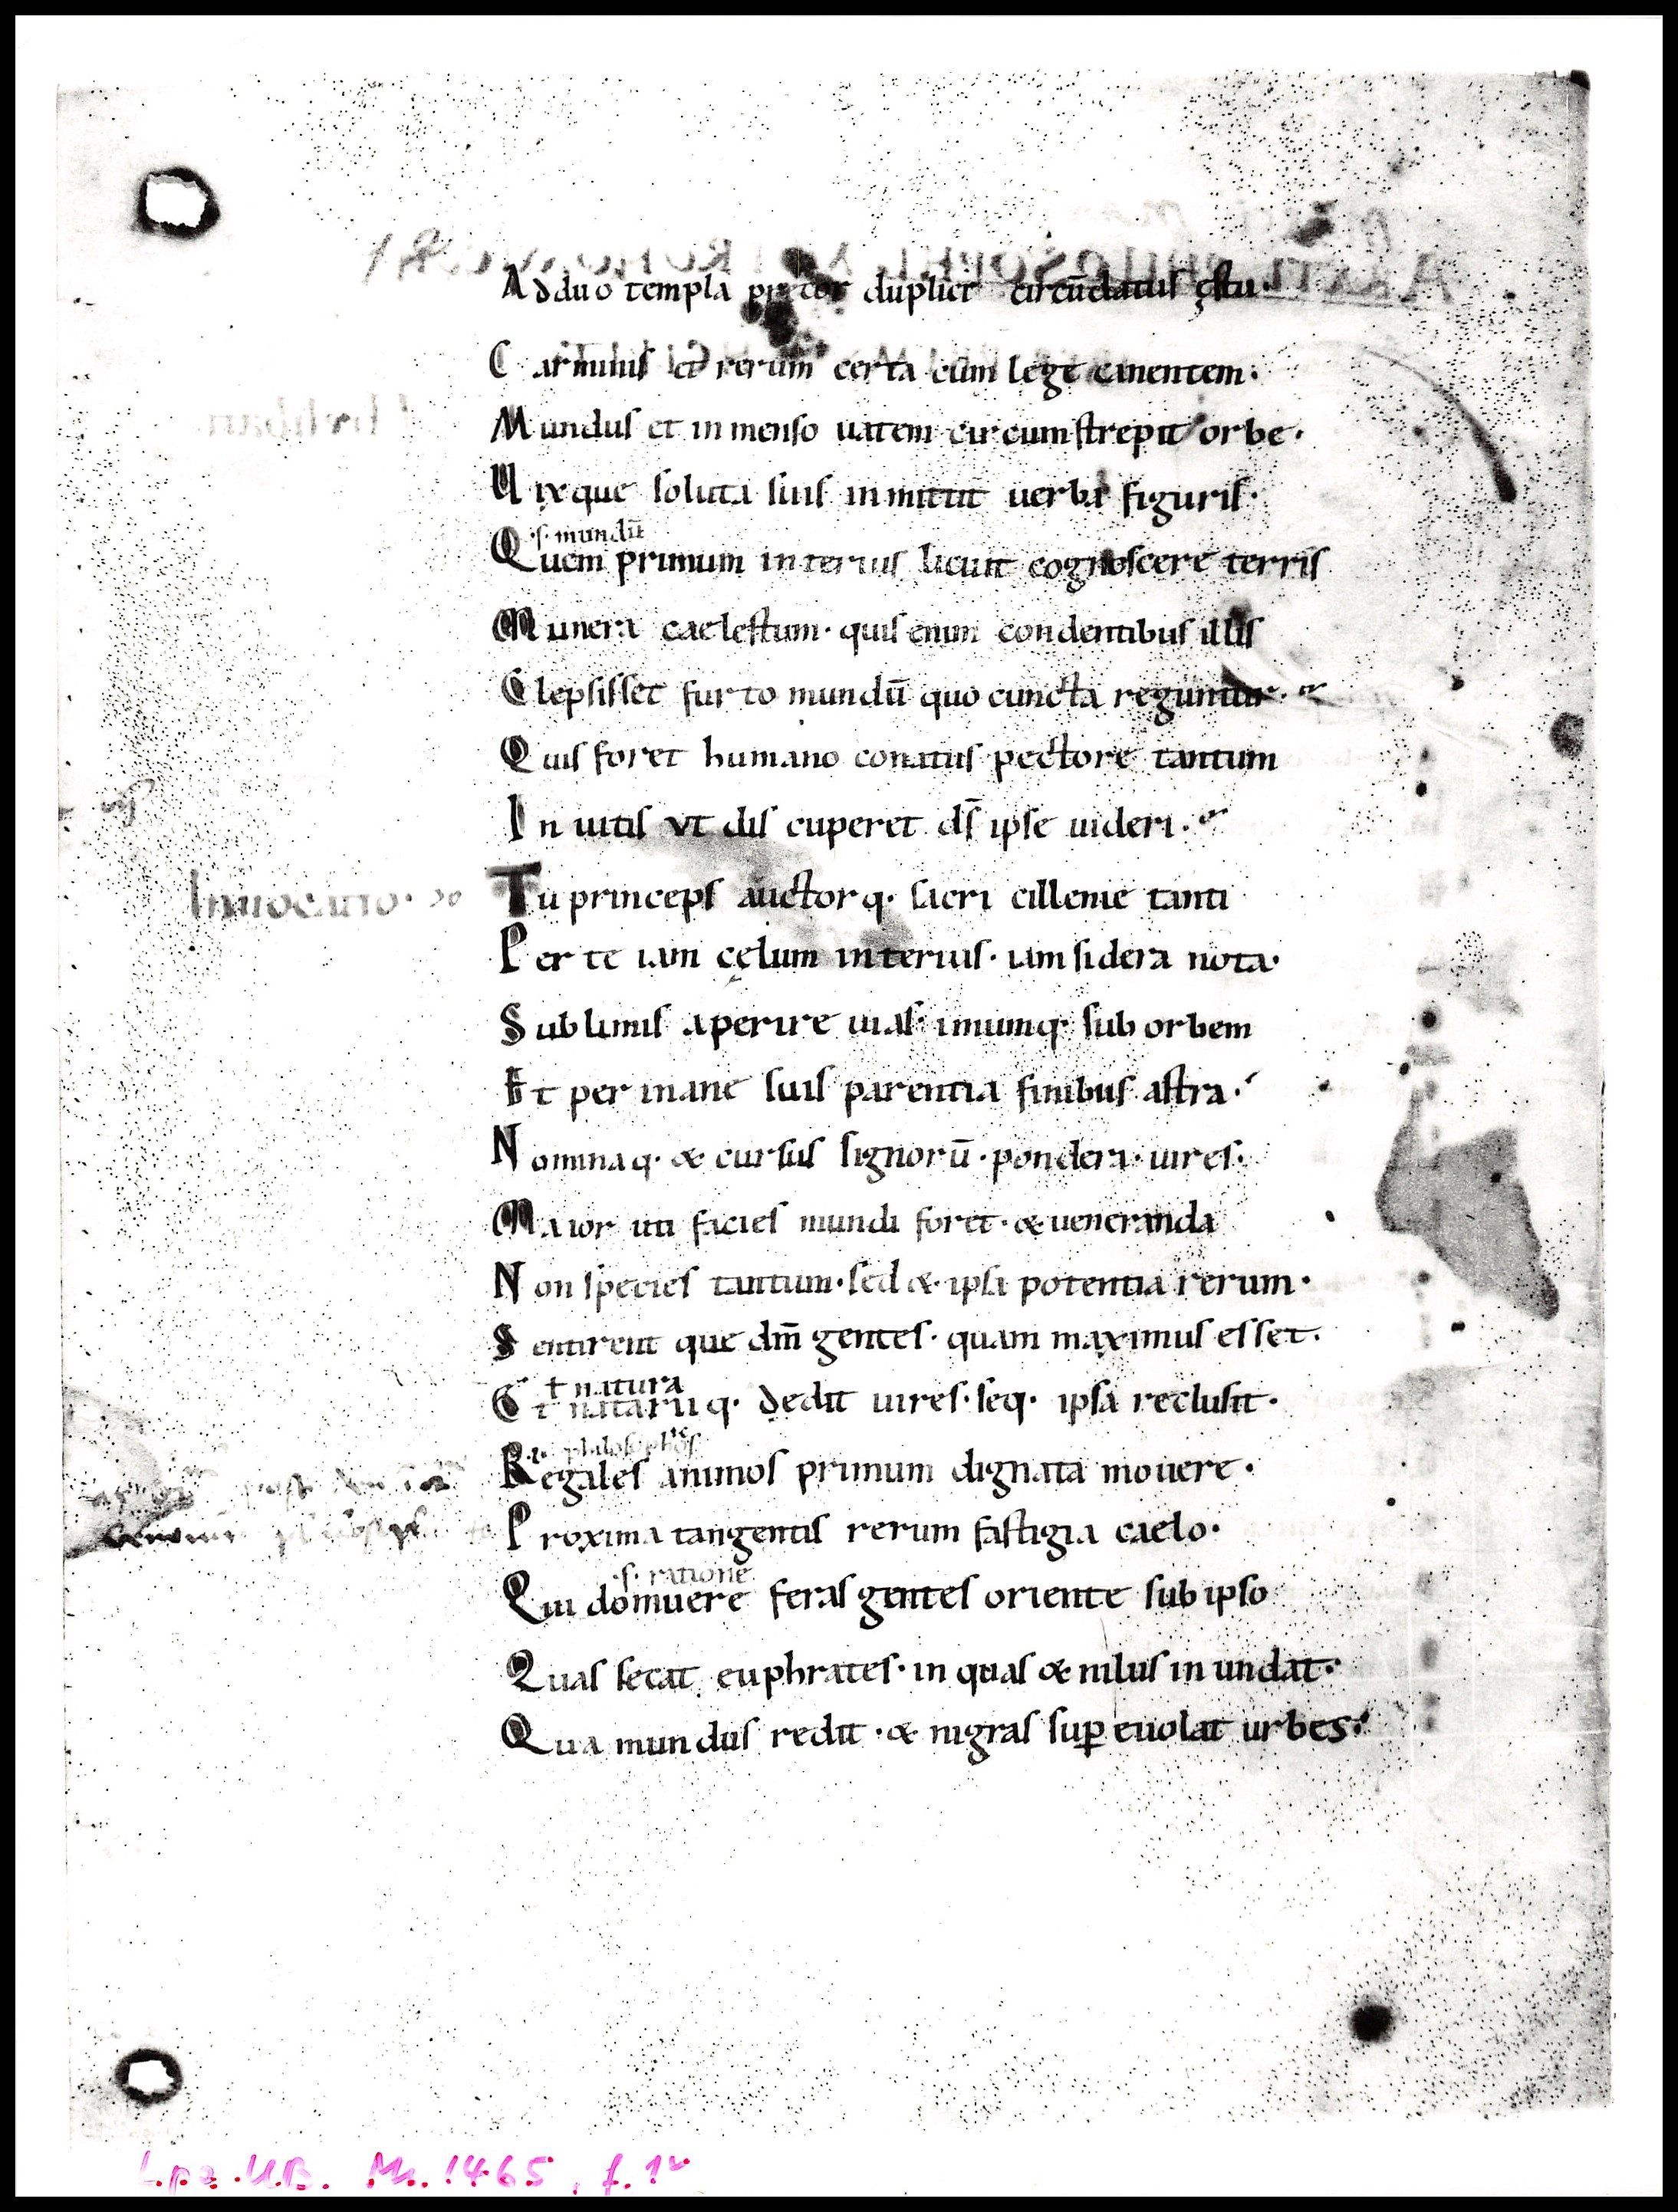 Ad duo templa precor duplici circūdatus ęstu·
Carminis et rerum certa cum lege canentem·
Mundus et inmenso uatem circumstrepit orbe·
Uixque soluta suis inmittit uerba figuris·
·s· mundū
Quem primum interius licuit cognoscere terris
Munera caelestum· quis enim condentibus illis
Clepsisset furto mundū quo cuncta reguntur·
Quis foret humano conatus pectore tantum
Inuitis vt dis cuperet ds̄ ipse uideri·
Inuocatio·
Tu princeps auctorq· sacri cillenie tanti
Per te iam cęlum interius· iam sidera nota·
Sublimis aperire uias· imumq· sub orbem
Et per inane suis parentia finibus astra·
Nominaq· & cursus signorū· pondera· uires·
Maior uti facies mundi foret· & ueneranda
Non species tantum· sed & ipsa potentia rerum·
Sentirent que dm̄ gentes· quam maximus esset·
ł natura
Et nataruq· dedit uires· seq· ipsa reclusit·
philosophos
Regales animos primum dignata mouere·
Proxima tangentis rerum fastigia caelo·
·s· ratione
Qui domuere feras gentes oriente sub ipso
Quas secat euphrates· in quas & nilus inundat·
Qua mundus redit· & nigras sup̄ euolat urbes·
Lpz. U.B. Ms. 1465, f. 1v